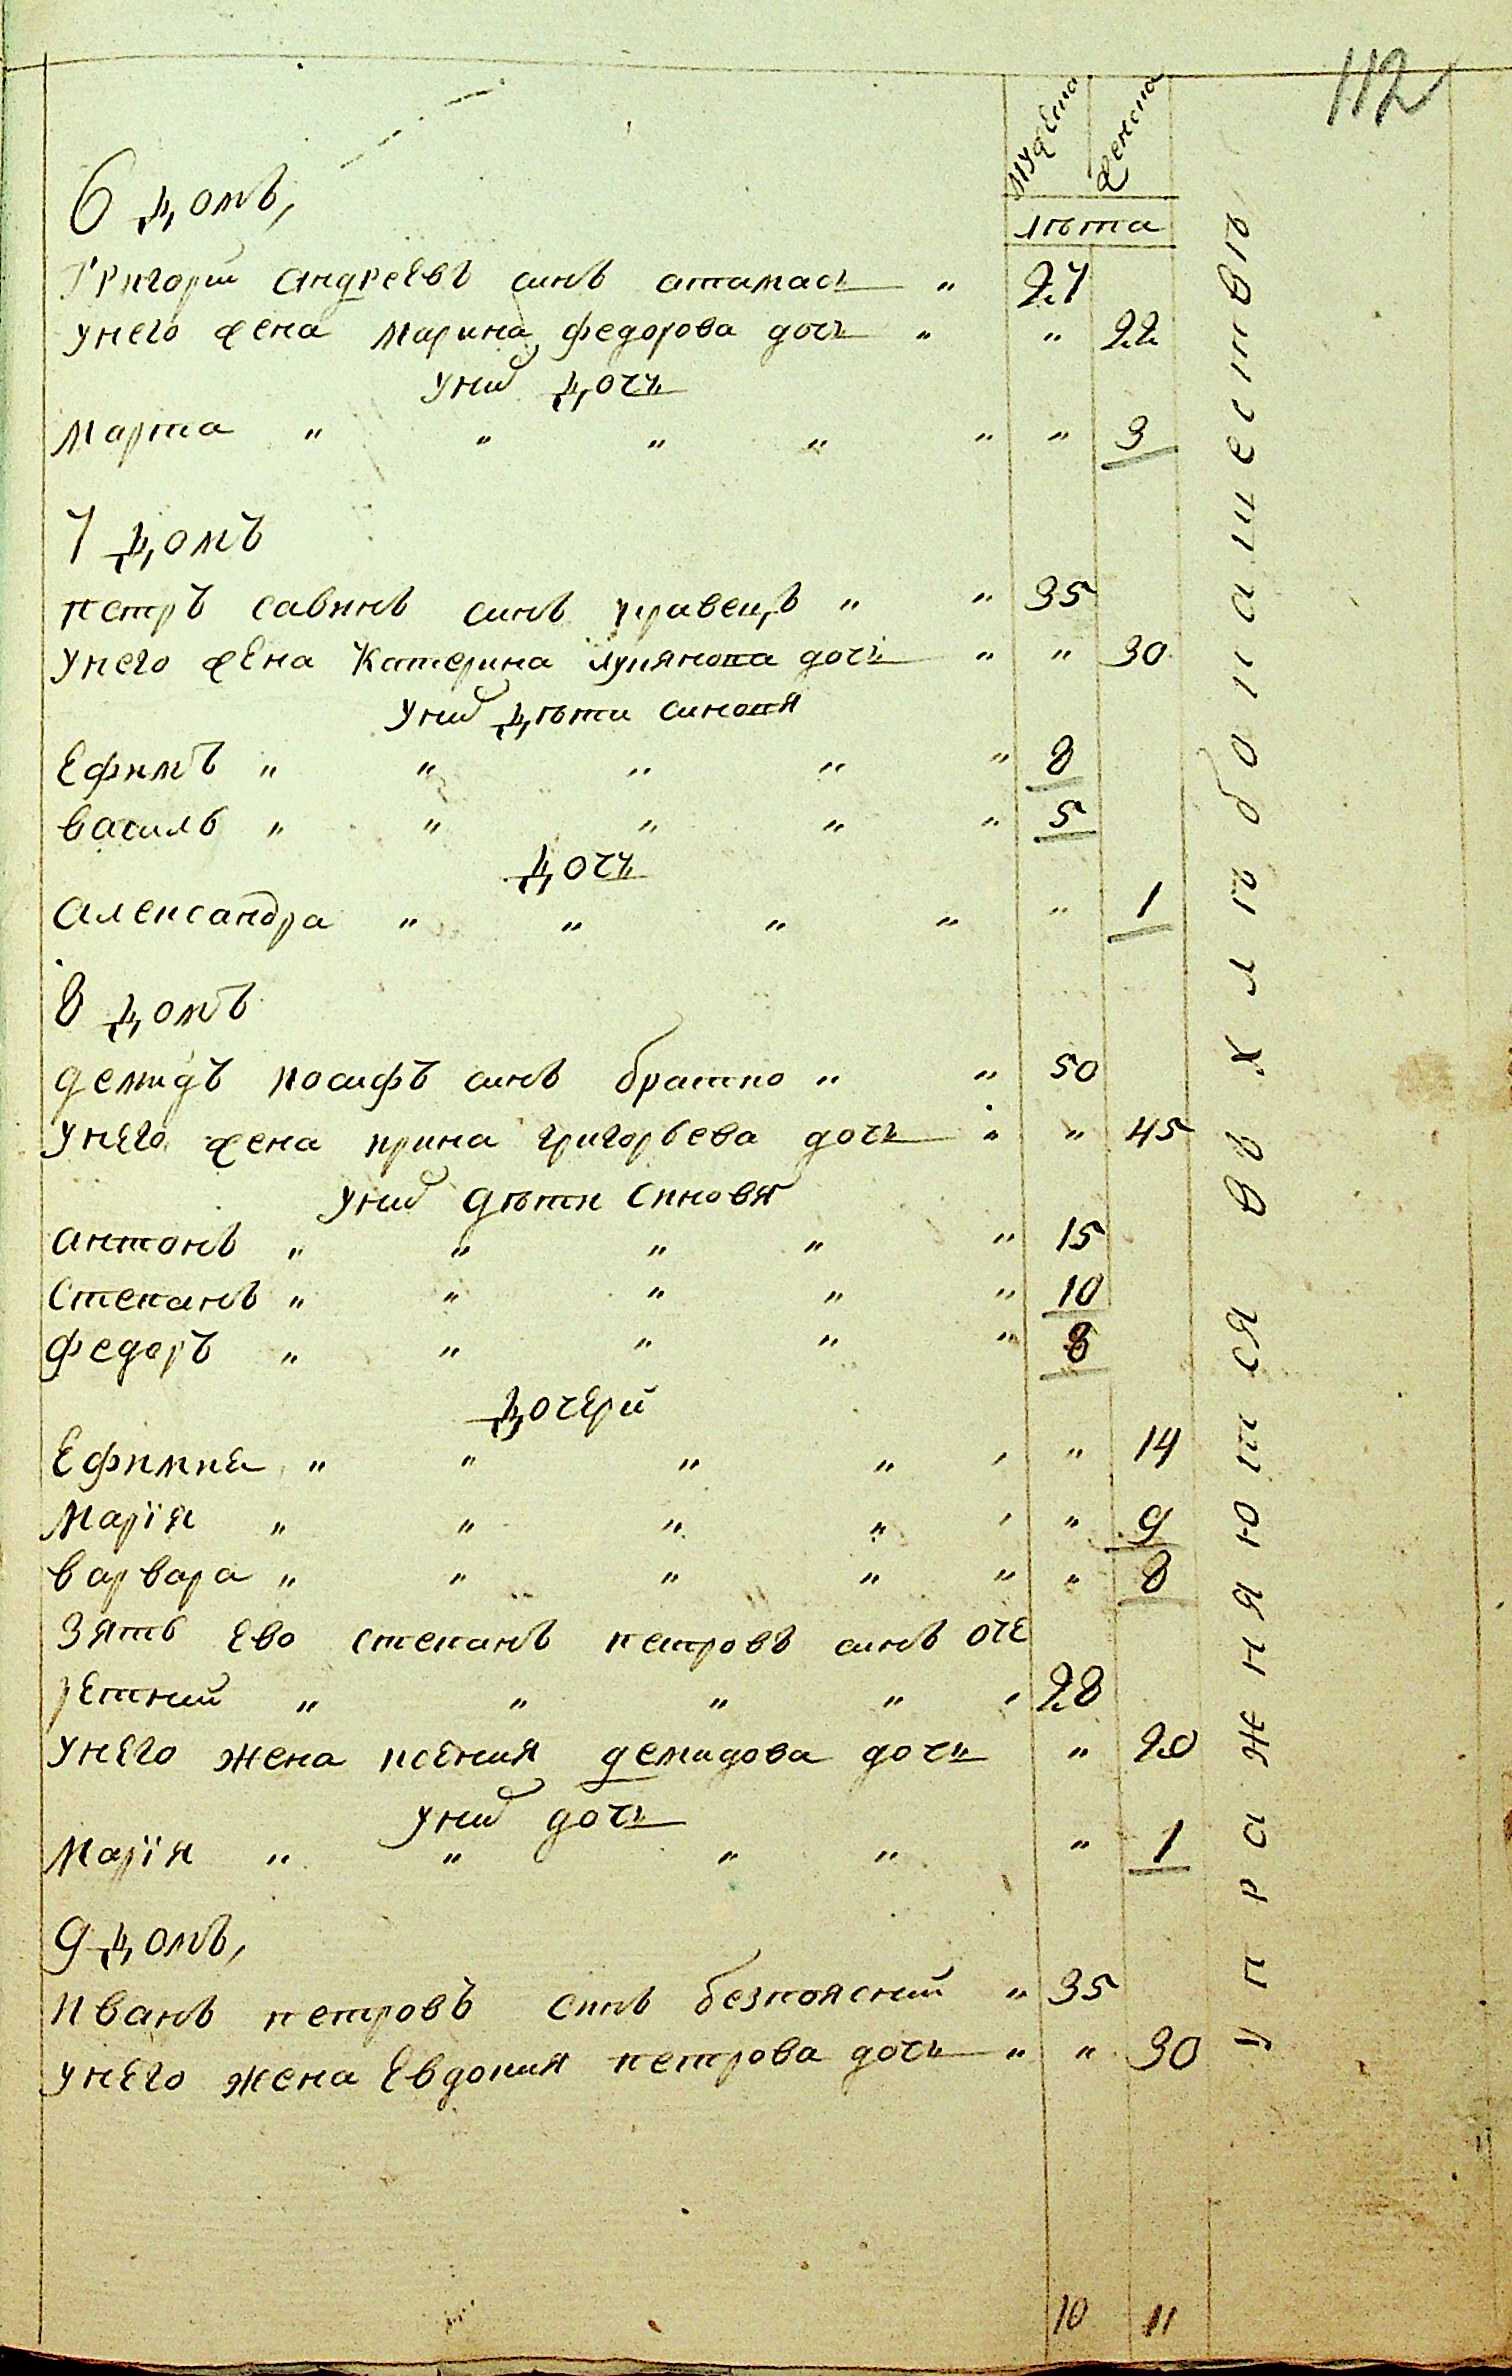 112
мужеска женска
лѣта
6 домъ,
Григорий андреевъ синъ атамасъ „ 27
унего жена марина федорова дочь „ „ 22
уних дочь
марта „ „ „ „ „ „ 3
7 домъ
петръ савинъ синъ кравецъ „ „ 35
унего жена Катерина лукянова дочь „ „ 30
уних дѣти синовя
Ефимъ „ „ „ „ „ 8
василь „ „ „ „ „ 5
дочь
александра „ „ „ „ „ 1
8 домъ
демидъ иосифъ синъ братко „ „ 50
унего жена ирина григорьева дочь „ „ 45
уних дѣти синовя
антонъ „ „ „ „ „ 15
Степанъ „ „ „ „ „ 10
федоръ „ „ „ „ „ 8
дочери
Ефимия „ „ „ „ „ „ 14
Марїя „ „ „ „ „ „ 9
варвара „ „ „ „ „ „ 8
Зять Ево степанъ петровъ синъ оче
ретний „ „ „ „ „ 28
унего жена ксения демидова дочь „ 20
уних дочь
Марїя „ „ „ „ „ 1
9 домъ,
иванъ петровъ синъ безпоясний „ 35
унего жена Евдокия петрова дочь „ „ 30
10 11
упражняются въ хлѣбопашествѣ